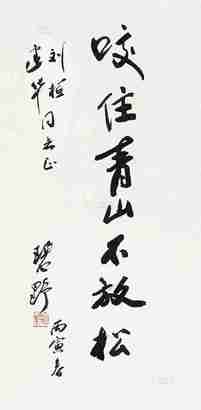 咬住青山不放松
刘桢
建华同志正
碧野
丙寅春